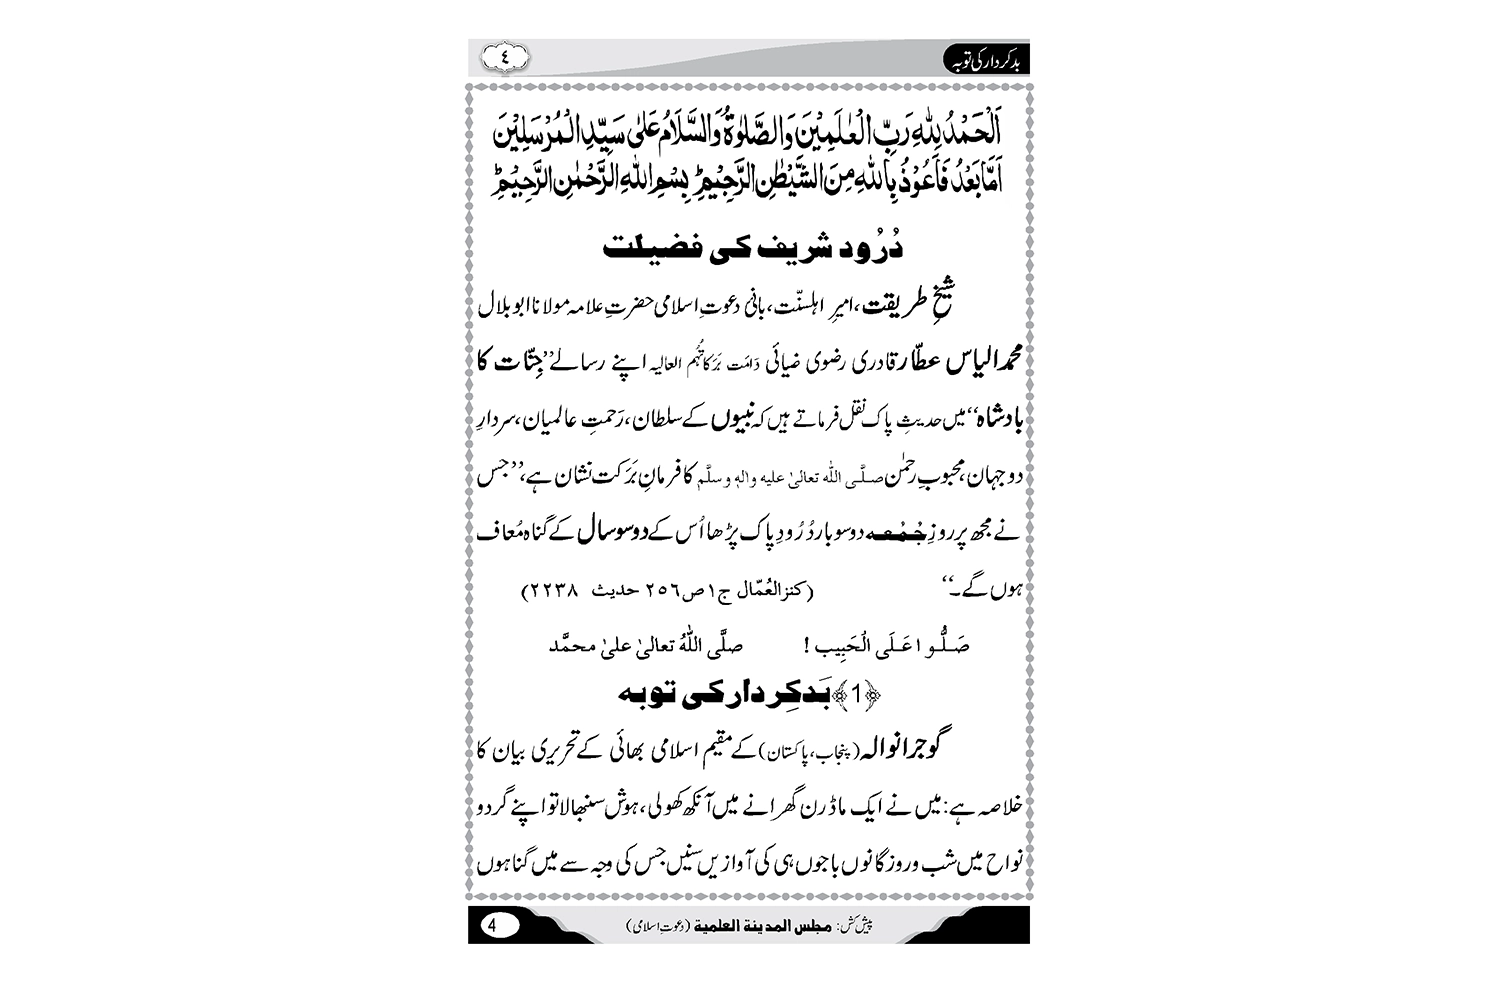 بدکردار کی توبہ
٤
اَلْحَمْدُ لِلّٰهِ رَبِّ الْعٰلَمِيْنَ وَالصَّلٰوةُ وَالسَّلَامُ عَلٰى سَيِّدِ الْمُرْسَلِيْنَ
اَمَّا بَعْدُ فَاَعُوْذُ بِاللّٰهِ مِنَ الشَّيْطٰنِ الرَّجِيْمِ ؕ بِسْمِ اللّٰهِ الرَّحْمٰنِ الرَّحِيْمِ ؕ
دُرُود شریف کی فضیلت
شیخِ طریقت، امیرِ اہلسنّت، بانیٔ دعوتِ اسلامی حضرتِ علامہ مولانا ابو بلال
محمد الیاس عطّار قادری رضوی ضیائی دَامَت بَرَکاتُہُم العالیہ اپنے رسالے ’’جِنّات کا
بادشاہ‘‘ میں حدیثِ پاک نقل فرماتے ہیں کہ نبیوں کے سلطان، رَحمتِ عالمیان، سردارِ
دو جہان، محبوبِ رحمٰن صلَّی اللہ تعالیٰ علیہ والہٖ وسلَّم کا فرمانِ بَرَکت نشان ہے، ’’جس
نے مجھ پر روزِ جُمُعہ دو سو بار دُرُودِ پاک پڑھا اُس کے دو سو سال کے گناہ مُعاف
ہوں گے۔‘‘ (کنزالعُمّال ج١ ص٢٥٦ حدیث ٢٢٣٨)
صَلُّوا عَلَی الْحَبِیب ! صلَّی اللہُ تعالیٰ علیٰ محمَّد
﴿1﴾ بَدکِردار کی توبہ
گوجرانوالہ (پنجاب، پاکستان) کے مقیم اسلامی بھائی کے تحریری بیان کا
خلاصہ ہے: میں نے ایک ماڈرن گھرانے میں آنکھ کھولی، ہوش سنبھالا تو اپنے گردو
نواح میں شب و روز گانوں باجوں ہی کی آوازیں سنیں جس کی وجہ سے میں گناہوں
پیش کش: مجلس المدینۃ العلمیۃ (دعوتِ اسلامی)
4